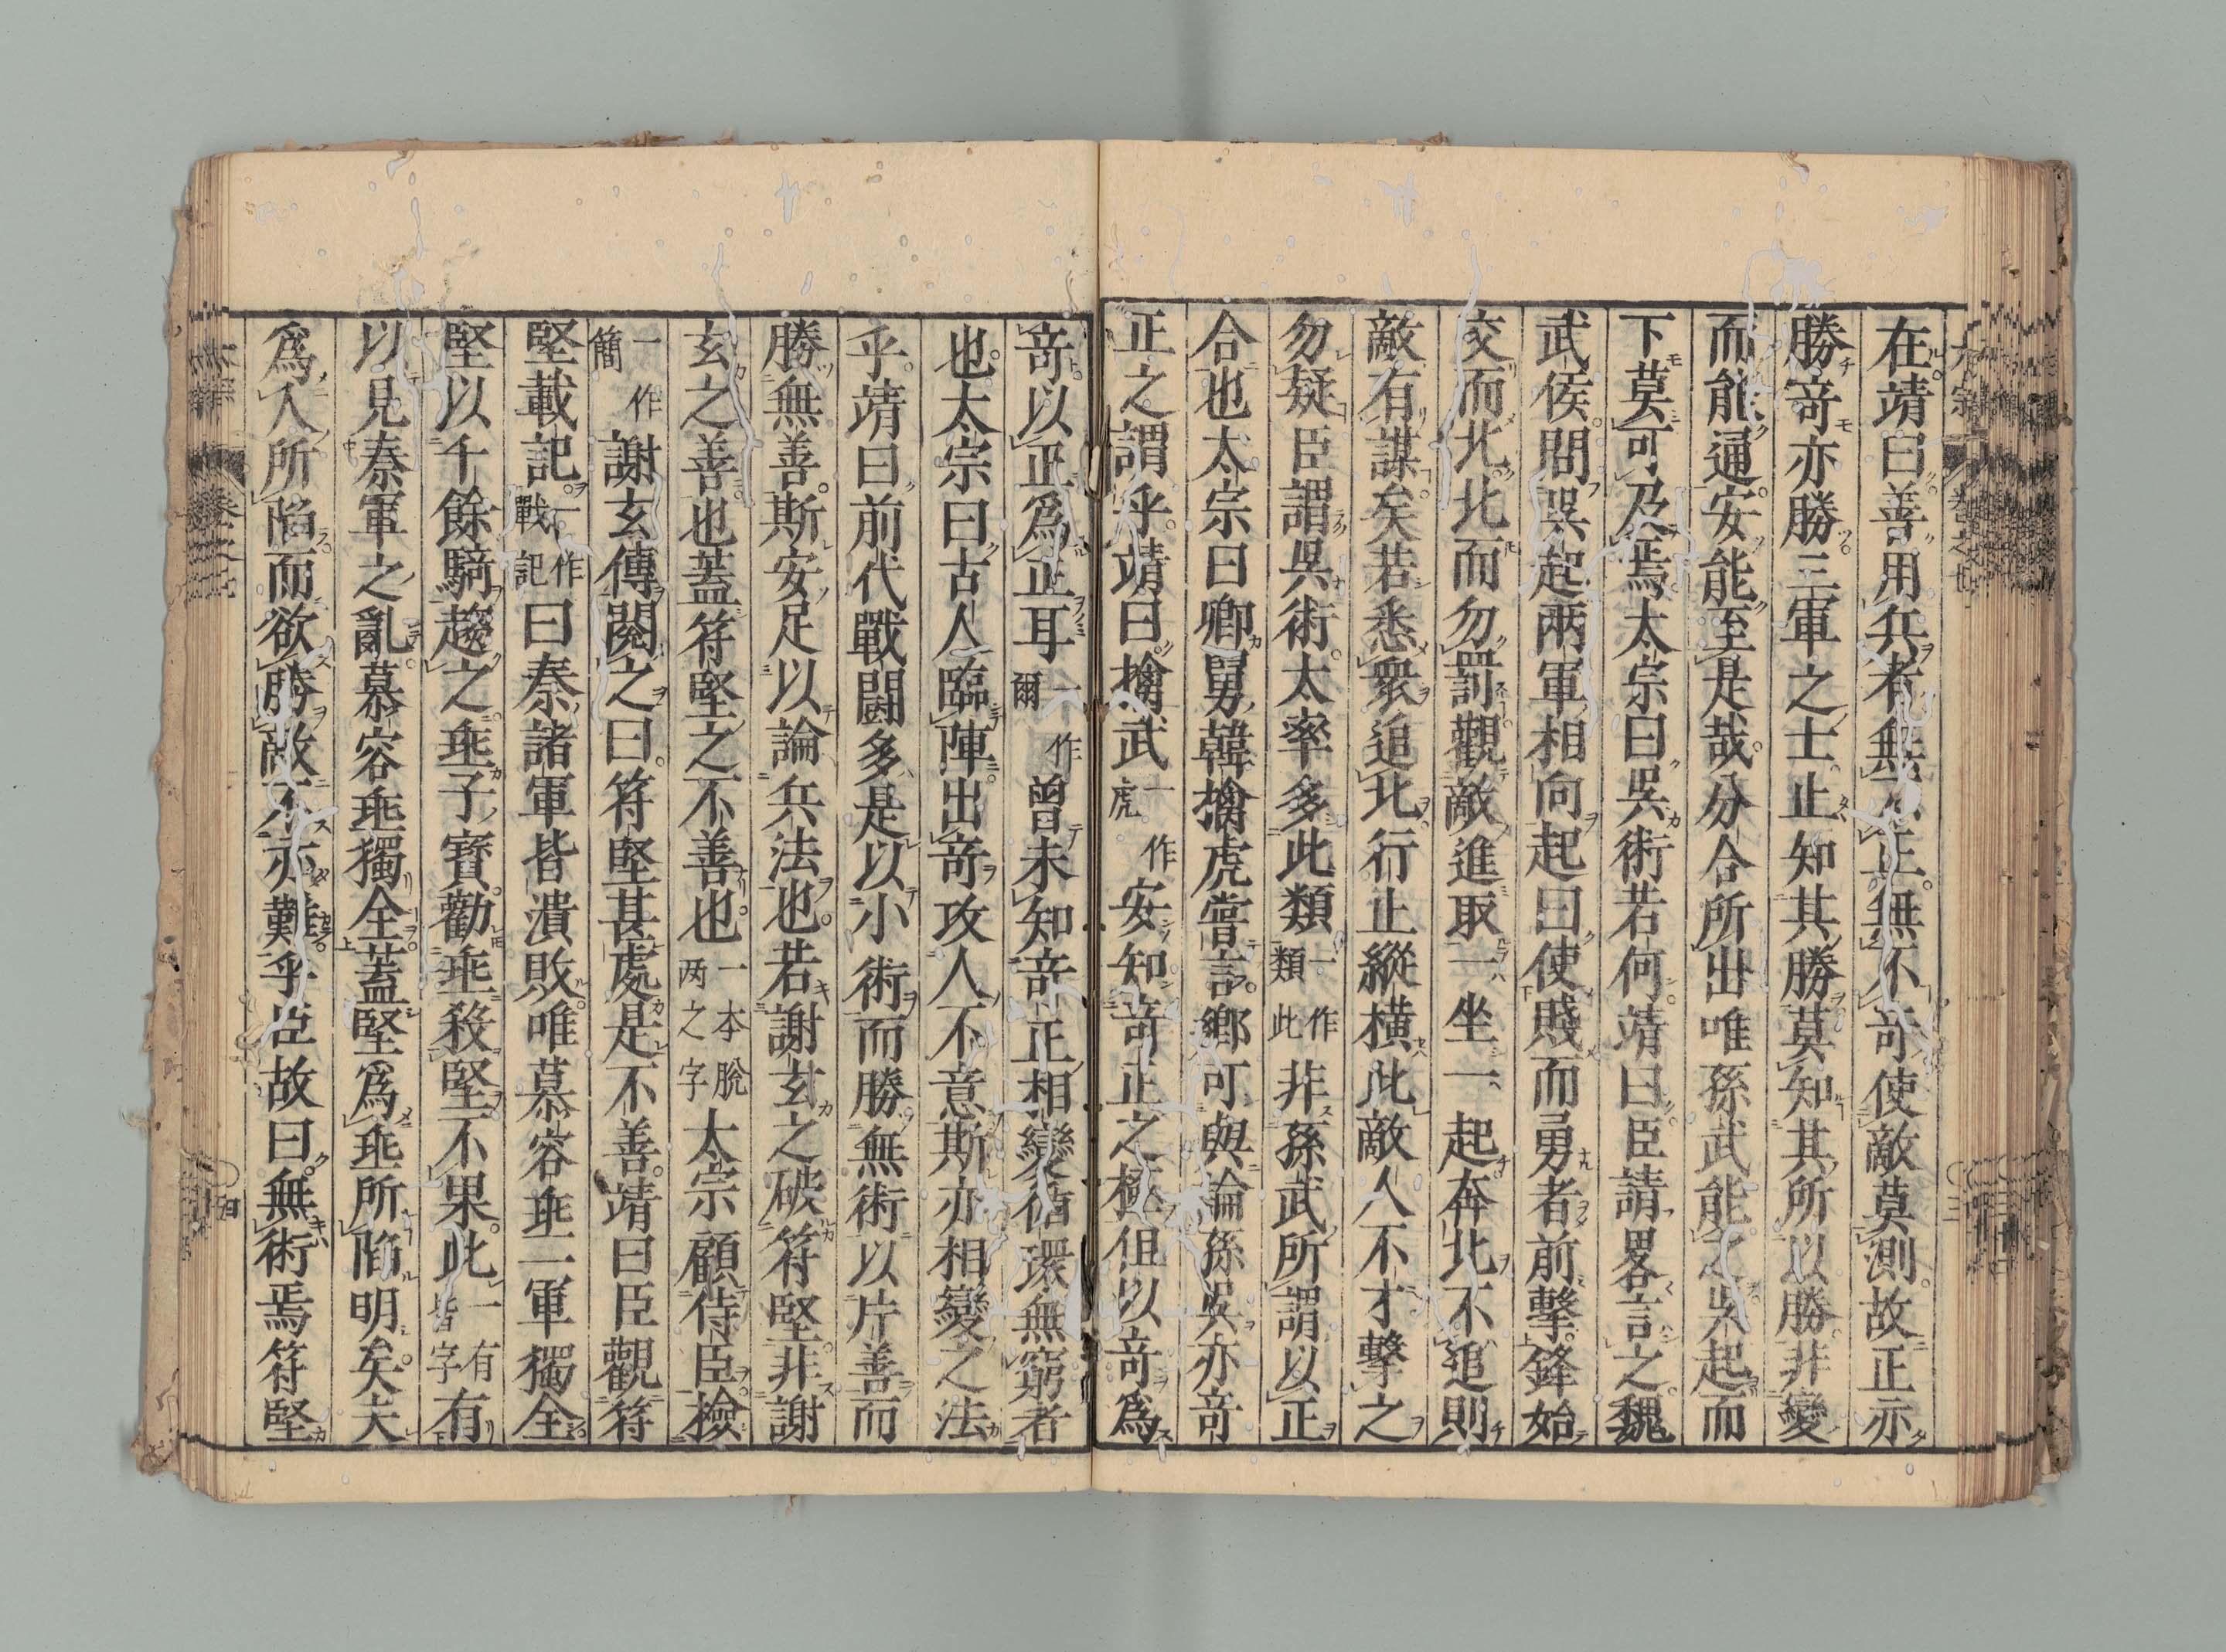 在靖曰善用兵者無不正無不竒使敵莫測故正亦
勝竒亦勝三軍之士止知其勝莫知其所以勝非變
而能通安能至是哉分合所出唯孫武能之吳起而
下莫可及焉太宗曰吳術若何靖曰臣請畧言之魏
武侯問吳起兩軍相向起曰使賤而勇者前擊鋒始
交而北北而勿罰觀敵進取一坐一起奔北不追則
敵有謀矣若悉衆追北行止縱橫此敵人不才擊之
勿疑臣謂吳術太率多此類一作類此非孫武所謂以正
合也太宗曰卿舅韓擒虎嘗言卿可與論孫吳亦竒
正之謂乎靖曰擒武一作虎安知竒正之極但以竒爲
竒以正爲正耳一作爾曾未知竒正相變循環無窮者
也太宗曰古人臨陣出竒攻人不意斯亦相變之法
乎靖曰前代戰鬪多是以小術而勝無術以片善而
勝無善斯安足以論兵法也若謝玄之破符堅非謝
玄之善也蓋符堅之不善也一本脫两之字太宗顧侍臣檢
一作簡謝玄傳閱之曰符堅甚處是不善靖曰臣觀符
堅載記一作戰記曰秦諸軍皆潰敗唯慕容垂一軍獨全
堅以千餘騎趨之垂子寶勸垂殺堅不果此一有皆字有
以見秦軍之亂慕容垂獨全蓋堅爲垂所陷明矣夫
爲人所陷而欲勝敵不亦難乎臣故曰無術焉符堅